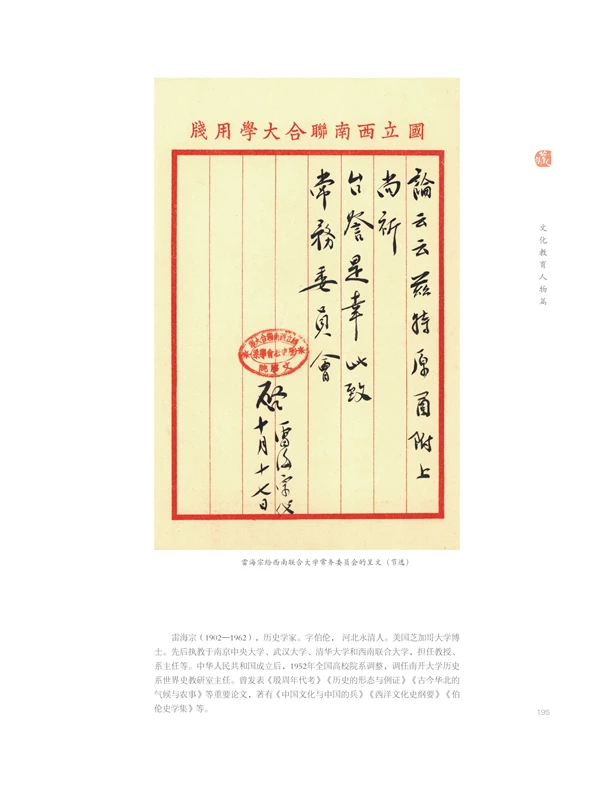 國立西南聯合大學用牋
論云云茲特原函附上
尚祈
台詧是幸此致
常務委員會
國立西南聯合大學
文學院
啓
雷海宗
十月十七日
雷海宗给西南联合大学常务委员会的呈文（节选）
文化教育人物篇
雷海宗（1902—1962），历史学家。字伯伦， 河北永清人。美国芝加哥大学博
士。先后执教于南京中央大学、武汉大学、清华大学和西南联合大学，担任教授、
系主任等。中华人民共和国成立后，1952年全国高校院系调整，调任南开大学历史
系世界史教研室主任。曾发表《殷周年代考》《历史的形态与例证》《古今华北的
气候与农事》等重要论文，著有《中国文化与中国的兵》《西洋文化史纲要》《伯
伦史学集》等。
195